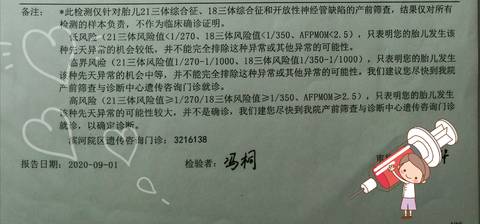 备注: *此检测仅针对胎儿21三体综合征、18三体综合征和开放性神经管缺陷的产前筛查, 结果仅对所有
检测的样本负责, 不作为临床确诊证明。
低风险 (21三体风险值<1/270、18三体风险值<1/350、AFPMOM<2.5), 只表明您的胎儿发生该
种先天异常的机会较低, 并不能完全排除这种异常或其他异常的可能性。
临界风险 (21三体风险值1/270-1/1000、18三体风险值1/350-1/1000), 只表明您的胎儿发生
该种先天异常的机会中等, 并不能完全排除这种异常或其他异常的可能性。我们建议您尽快到我院
产前筛查与诊断中心遗传咨询门诊就诊。
高风险 (21三体风险值≥1/270/18三体风险值≥1/350、AFPMOM≥2.5), 只表明您的胎儿发生
该种先天异常的可能性较大, 并不是确诊, 我们建议您尽快到我院产前筛查与诊断中心遗传咨询门
诊就诊, 以确定诊断。
滨河院区遗传咨询门诊: 3216138
报告日期: 2020-09-01 检验者: 冯桐